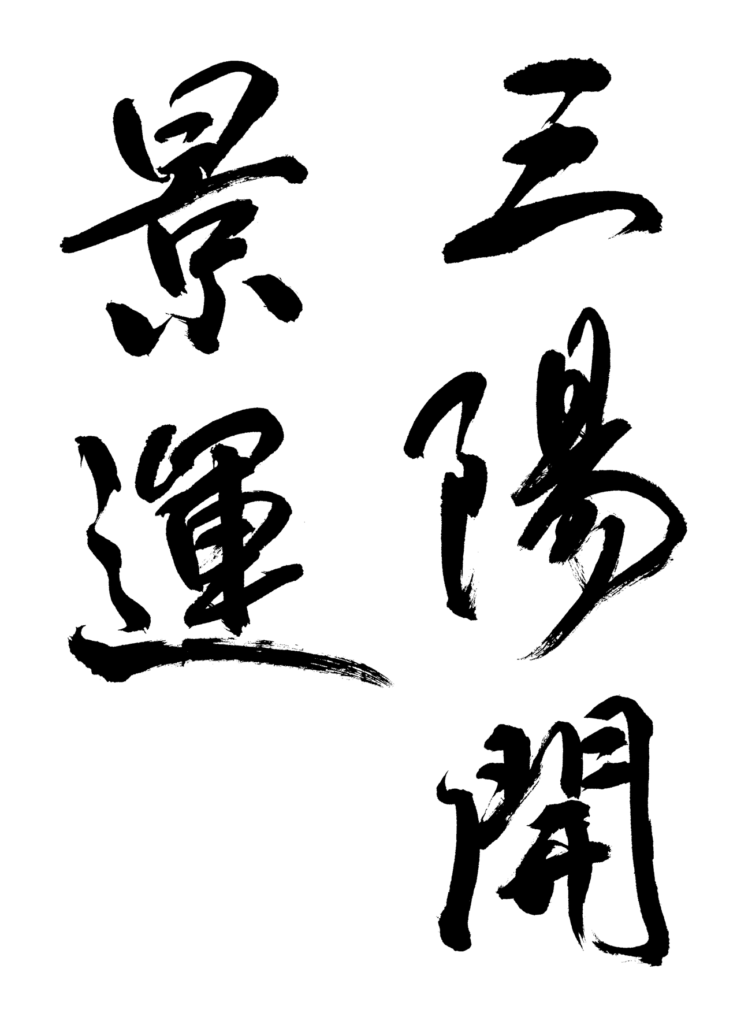 三陽開
景運